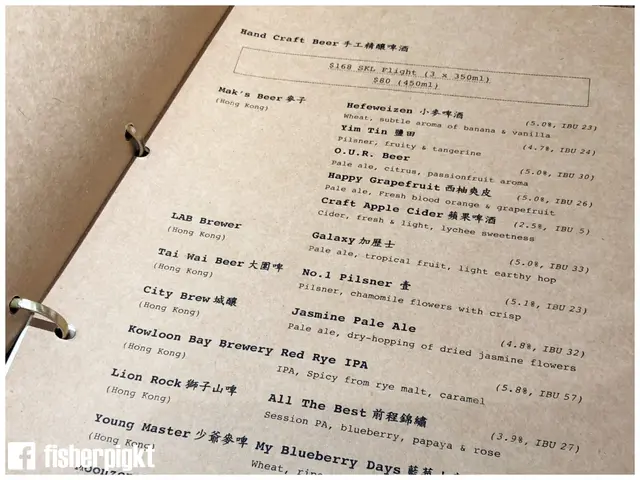 Hand Craft Beer 手工精釀啤酒
$168 SKL Flight (3 x 350ml)
$80 (450ml)
Mak's Beer 麥子
(Hong Kong)
Hefeweizen 小麥啤酒
(5.0%, IBU 23)
Wheat, subtle aroma of banana & vanilla
Yim Tin 鹽田
(4.7%, IBU 24)
Pilsner, fruity & tangerine
O.U.R. Beer
(5.0%, IBU 30)
Pale ale, citrus, passionfruit aroma
Happy Grapefruit 西柚爽皮
(5.0%, IBU 26)
Pale ale, Fresh blood orange & grapefruit
Craft Apple Cider 蘋果啤酒
(2.5%, IBU 5)
Cider, fresh & light, lychee sweetness
LAB Brewer
(Hong Kong)
Galaxy 加歷士
(5.0%, IBU 33)
Pale ale, tropical fruit, light earthy hop
Tai Wai Beer 大圍啤
(Hong Kong)
No.1 Pilsner 壹
(5.1%, IBU 23)
Pilsner, chamomile flowers with crisp
City Brew 城釀
(Hong Kong)
Jasmine Pale Ale
(4.8%, IBU 32)
Pale ale, dry-hopping of dried jasmine flowers
Kowloon Bay Brewery Red Rye IPA
(Hong Kong)
(5.8%, IBU 57)
IPA, Spicy from rye malt, caramel
Lion Rock 獅子山啤
(Hong Kong)
All The Best 前程錦繡
(3.9%, IBU 27)
Session PA, blueberry, papaya & rose
Young Master 少爺麥啤
(Hong Kong)
My Blueberry Days
Wheat,
f fisherpigkt